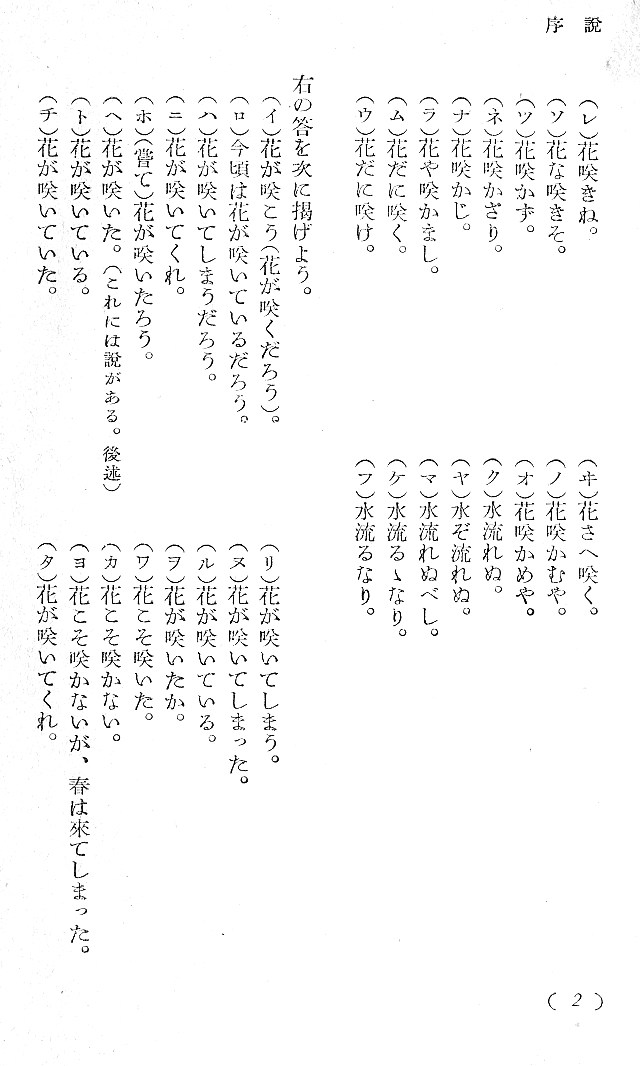 序說
（レ）花咲きね。
（ソ）花な咲きそ。
（ツ）花咲かず。
（ネ）花咲かざり。
（ナ）花咲かじ。
（ラ）花や咲かまし。
（ム）花だに咲く。
（ウ）花だに咲け。
（ヰ）花さへ咲く。
（ノ）花咲かむや。
（オ）花咲かめや。
（ク）水流れぬ。
（ヤ）水ぞ流れぬ。
（マ）水流れぬべし。
（ケ）水流るゝなり。
（フ）水流るなり。
右の答を次に揭げよう。
（イ）花が咲こう（花が咲くだろう）。
（ロ）今頃は花が咲いているだろう。
（ハ）花が咲いてしまうだろう。
（ニ）花が咲いてくれ。
（ホ）（嘗て）花が咲いたろう。
（ヘ）花が咲いた。（これには說がある。後述）
（ト）花が咲いている。
（チ）花が咲いていた。
（リ）花が咲いてしまう。
（ヌ）花が咲いてしまった。
（ル）花が咲いている。
（ヲ）花が咲いたか。
（ワ）花こそ咲いた。
（カ）花こそ咲かない。
（ヨ）花こそ咲かないが、春は來てしまった。
（タ）花が咲いてくれ。
（2）